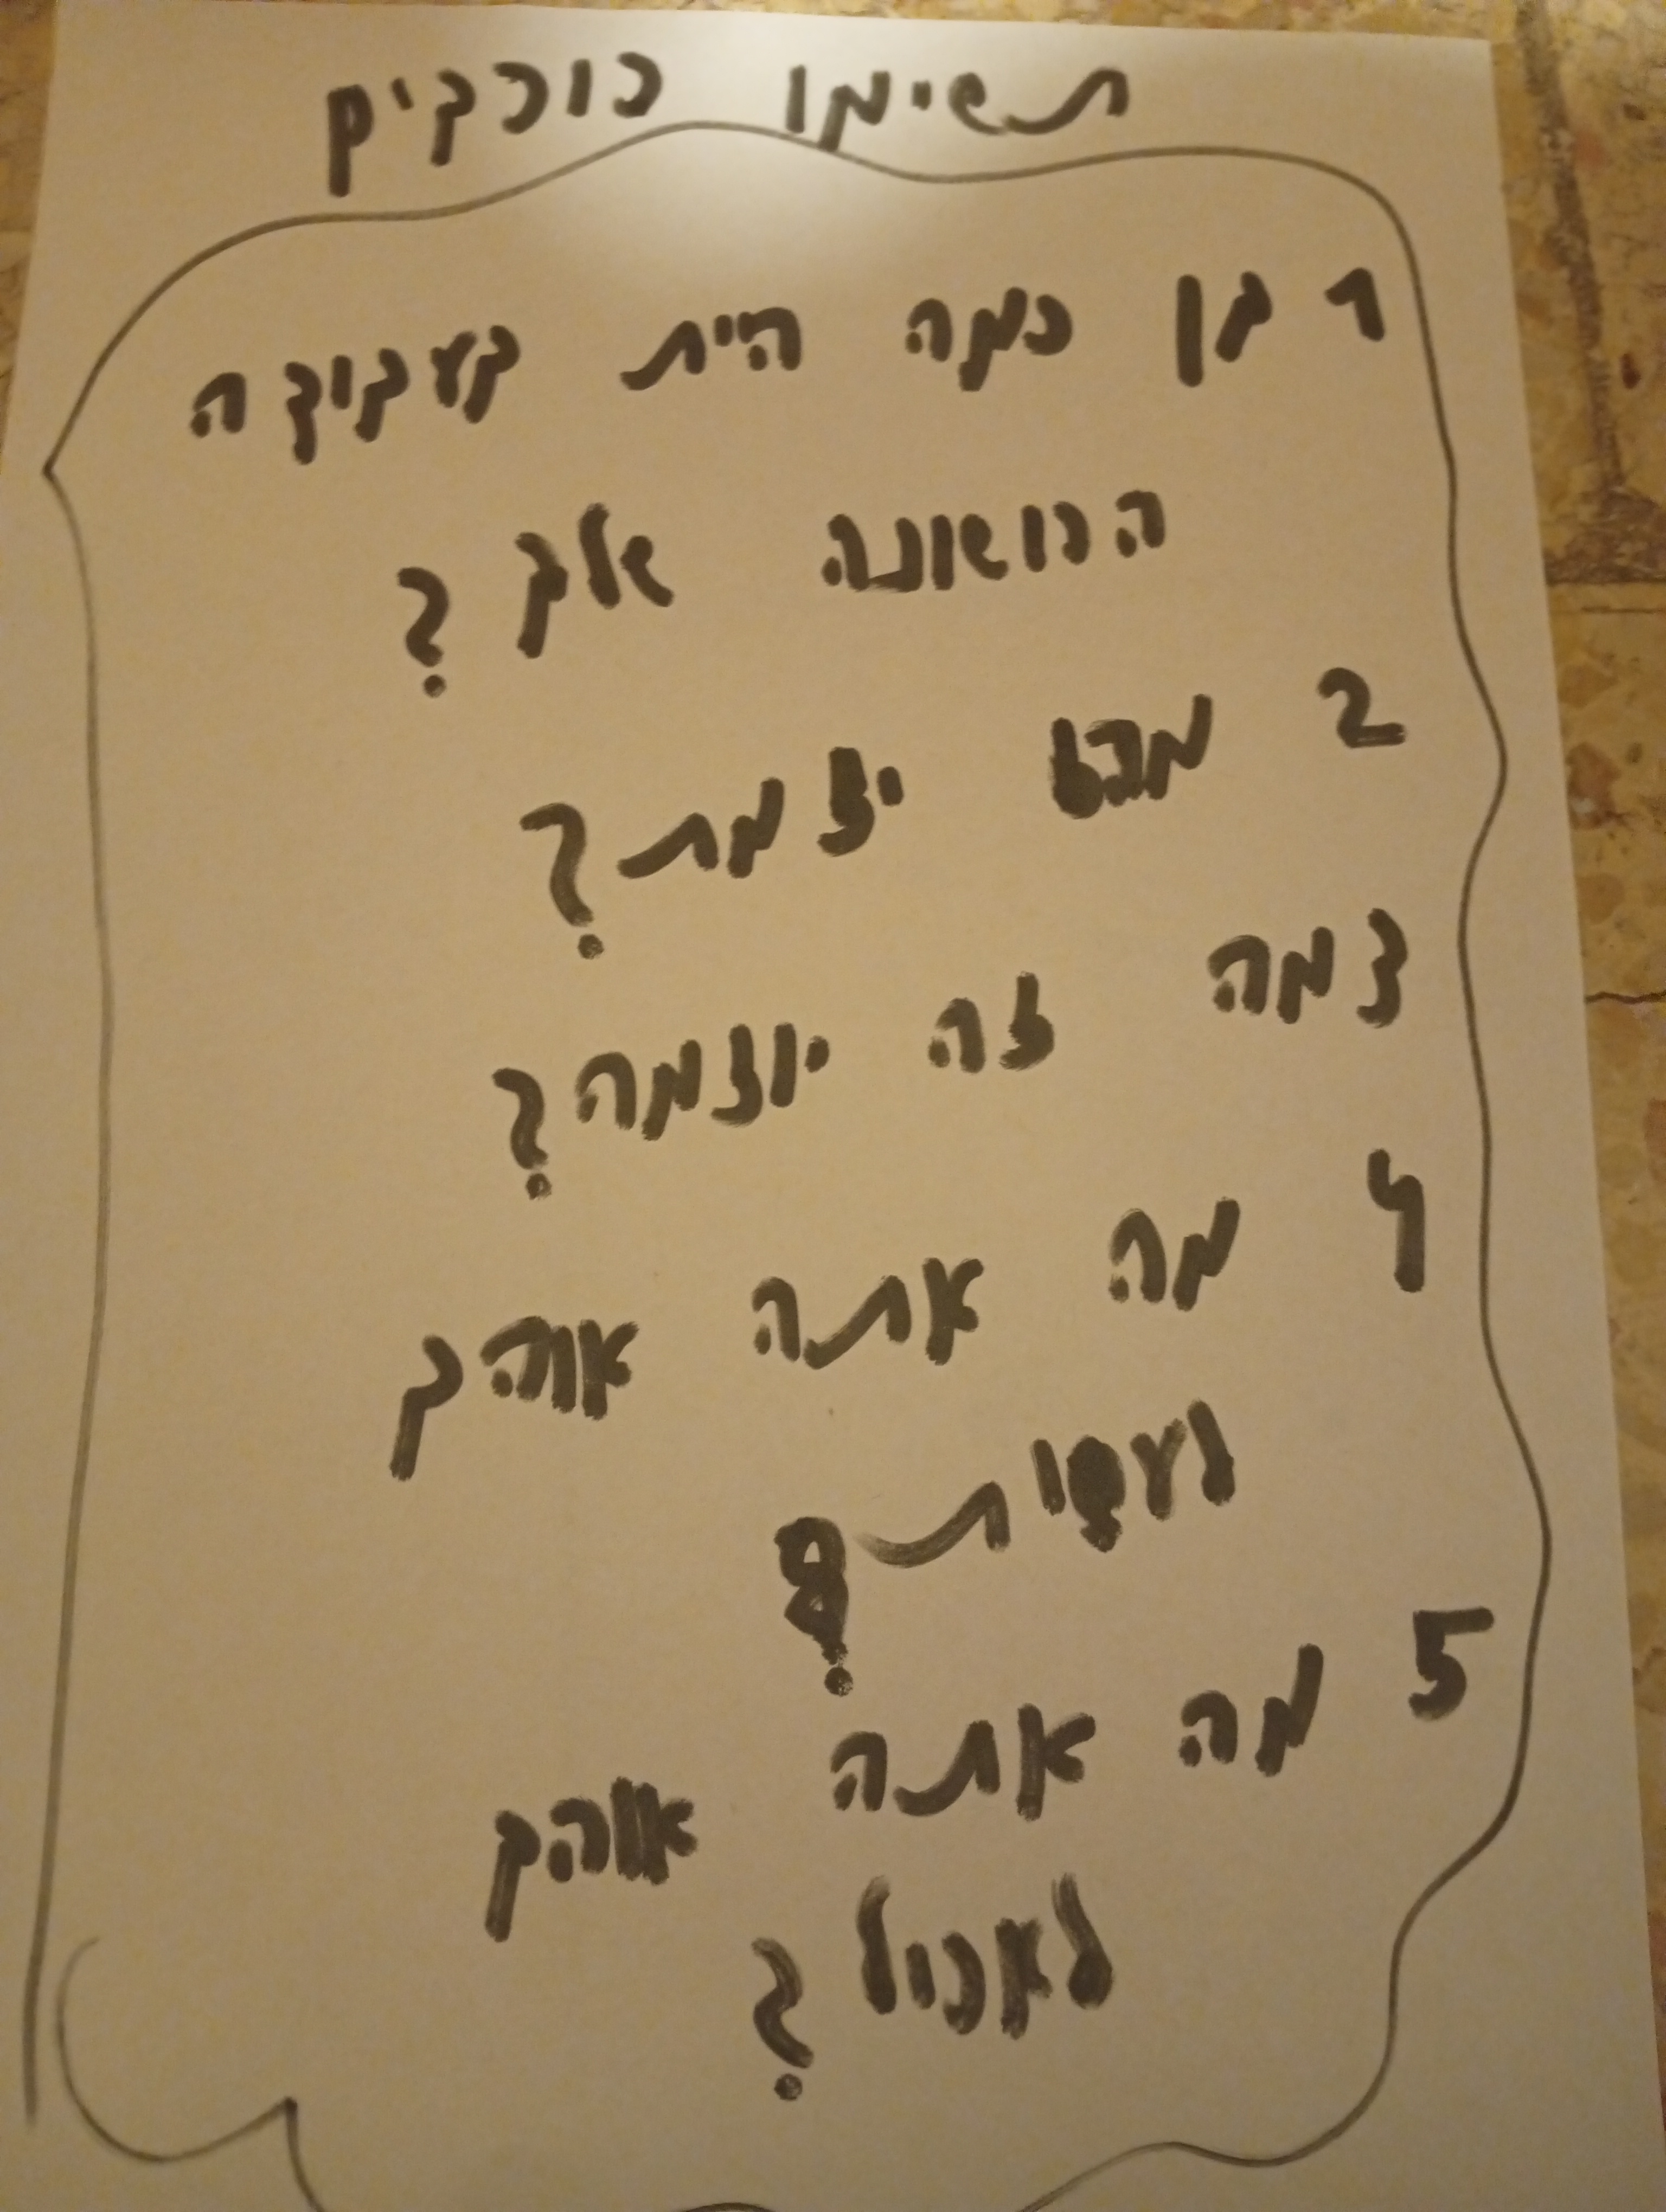 תשימו כוכבים
1 בן כמה היית בעבודה
הרושונה שלך ?
2 מבט יזמת ?
3 מה זה יוזמה ?
4 מה אתה אוהב
לעשות ?
5 מה אתה אוהב
לאכול ?